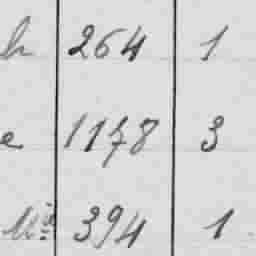 h 264 1
e 1178 3
394 1